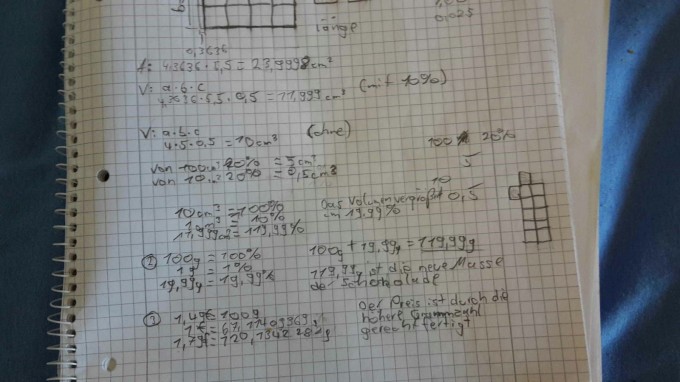 länge
0,3636
0,025
A: 4,3636 · 5,5 = 23,9998 cm²
V: a·b·c (mit 10%)
4,3636 · 5,5 · 0,5 = 11,999 cm³
V: a·b·c (ohne)
4·5·0,5 = 10 cm³
100 20%
5
von 20% = 5 cm³
von 10 20% = 0,5 cm³
10
0,5
10 cm³ = 100% Das Volumen vergrößt
= 10% um 19,99%
11,999 = 119,99%
100g = 100% 100g + 19,99g = 119,99g
1g = 1% 119,99g ist die neue Masse
19,99g = 19,99% der Schokolade
③ 1,49€ 100g Der Preis ist durch die
1€ = 67,11409369 g höhere Grammzahl
1,79€ = g gerechtfertigt